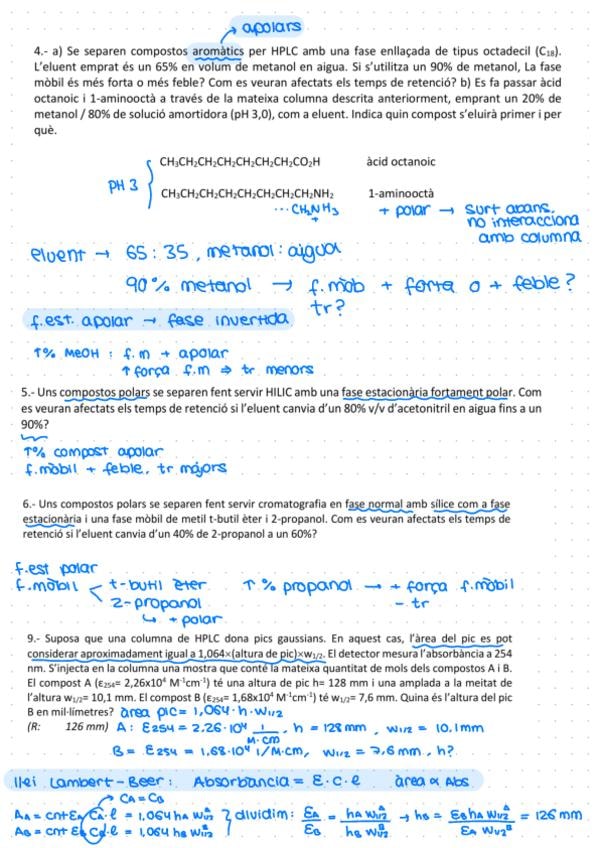 apolars
4.- a) Se separen compostos aromàtics per HPLC amb una fase enllaçada de tipus octadecil (C₁₈).
L'eluent emprat és un 65% en volum de metanol en aigua. Si s'utilitza un 90% de metanol, La fase
mòbil és més forta o més feble? Com es veuran afectats els temps de retenció? b) Es fa passar àcid
octanoic i 1-aminooctà a través de la mateixa columna descrita anteriorment, emprant un 20% de
metanol / 80% de solució amortidora (pH 3,0), com a eluent. Indica quin compost s'eluirà primer i per
què.
CH₃CH₂CH₂CH₂CH₂CH₂CH₂CO₂H àcid octanoic
PH 3
CH₃CH₂CH₂CH₂CH₂CH₂CH₂CH₂NH₂ 1-aminooctà
...CH₂NH₃ + + polar → surt abans,
no interacciona
amb columna
eluent → 65 : 35 , metanol : aigua
90% metanol → f. mòb + forta o + feble?
tr?
f.est. apolar → fase invertida
↑% MeOH : f.m + apolar
↑ força f.m ⇒ tr menors
5.- Uns compostos polars se separen fent servir HILIC amb una fase estacionària fortament polar. Com
es veuran afectats els temps de retenció si l'eluent canvia d'un 80% v/v d'acetonitril en aigua fins a un
90%?
↑% compost apolar
f.mòbil + feble, tr májors
6.- Uns compostos polars se separen fent servir cromatografia en fase normal amb sílice com a fase
estacionària i una fase mòbil de metil t-butil èter i 2-propanol. Com es veuran afectats els temps de
retenció si l'eluent canvia d'un 40% de 2-propanol a un 60%?
f.est polar
f.mòbil < t-butil èter ↑ % propanol → + força f.mòbil
2-propanol - tr
↳ + polar
9.- Suposa que una columna de HPLC dona pics gaussians. En aquest cas, l'àrea del pic es pot
considerar aproximadament igual a 1,064×(altura de pic)×w₁/₂. El detector mesura l'absorbància a 254
nm. S'injecta en la columna una mostra que conté la mateixa quantitat de mols dels compostos A i B.
El compost A (ε₂₅₄= 2,26x10⁴ M⁻¹cm⁻¹) té una altura de pic h= 128 mm i una amplada a la meitat de
l'altura w₁/₂= 10,1 mm. El compost B (ε₂₅₄= 1,68x10⁴ M⁻¹cm⁻¹) té w₁/₂= 7,6 mm. Quina és l'altura del pic
B en mil·límetres? àrea pic = 1,064 · h · W1/2
(R: 126 mm) A : ε254 = 2.26·10⁴ 1/M·cm , h = 128 mm , W1/2 = 10.1mm
B = ε254 = 1,68·10⁴ 1/M·cm, W1/2 = 7,6 mm , h?
llei Lambert-Beer: Absorbancia = ε·c·l àrea ∝ Abs
CA = CB
AA = cnt εA CA·l = 1,064 hA W1/2ᴬ } dividim: εA/εB = hA W1/2ᴬ / hB W1/2ᴮ → hB = εB hA W1/2ᴬ / εA W1/2ᴮ = 126 mm
AB = cnt εB CB·l = 1,064 hB W1/2ᴮ